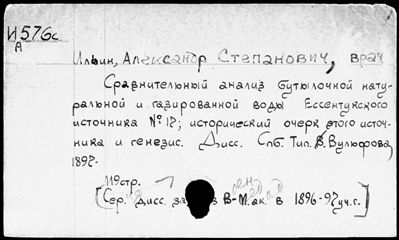 И576с
А
Ильин, Александр Степанович, врач
Сравнительный анализ бутылочной нату-
ральной и газированной воды Ессентукского
источника № 17; исторический очерк этого источ-
ника и генезис. Дисс. Спб. Тип. В. Вулюфрова,
1897.
119 стр.
[Сер. дисс. В-М.ак. в 1896-97 уч.г.]